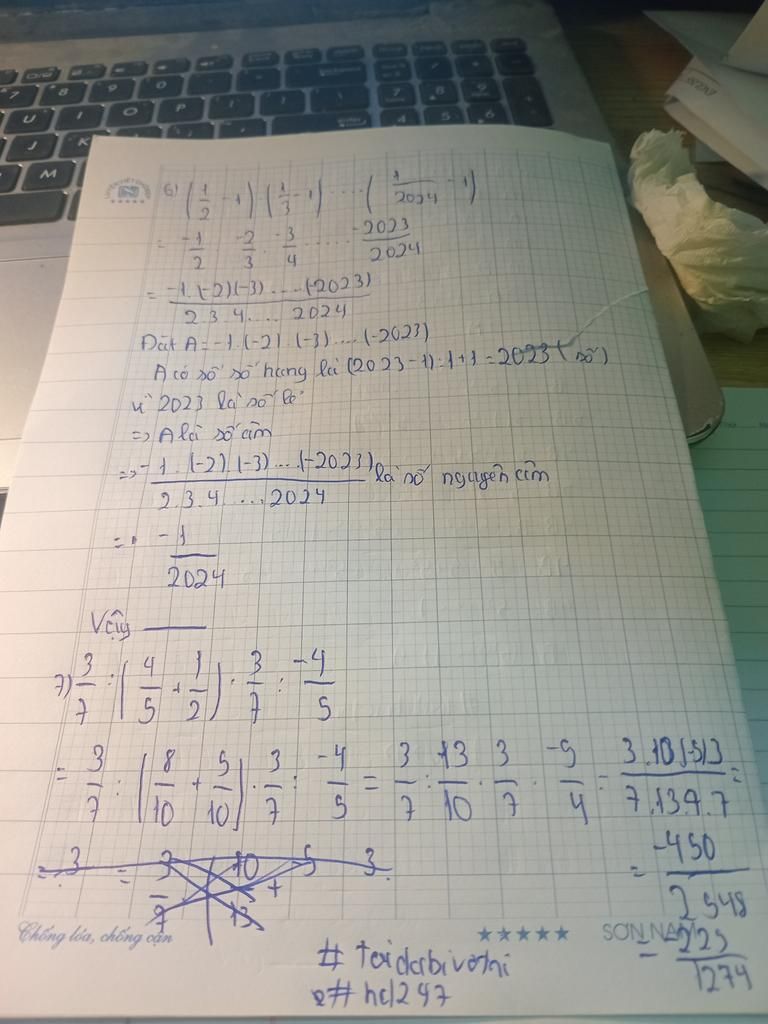 6) (1/2 - 1) (1/3 - 1) ..... (1/2024 - 1)
= -1/2 . -2/3 . -3/4 ..... -2023/2024
= -1.(-2)(-3)....(-2023) / 2.3.4.... 2024
Đặt A = -1.(-2).(-3)....(-2023)
A có số số hạng là (2023-1):1+1=2023 (số)
Vì 2023 là số lẻ
=> A là số âm
=> -1.(-2).(-3)....(-2023) / 2.3.4. ... 2024 là số nguyên âm
= -1/2024
Vậy
7) 3/7 : (4/5 + 1/2) . 3/7 : -4/5
= 3/7 : (8/10 + 5/10) . 3/7 : -4/5 = 3/7 : 13/10 . 3/7 . -5/4 = 3.10.(-5)3 / 7.13.4.7 =
= -450/2548
= -225/1274
Chống lóa, chống cận
★★★★★ SƠN NAM